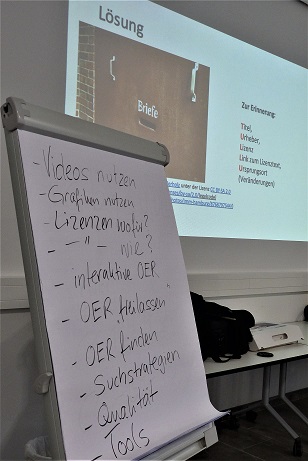 Lösung
Briefe
Zur Erinnerung:
Titel,
Urheber,
Lizenz
Link zum Lizenztext,
Ursprungsort
(Veränderungen)
unter der Lizenz CC BY-SA 2.0
- Videos nutzen
- Grafiken nutzen
- Lizenzen wofür?
- — " — wie?
- interaktive OER
- OER "freilassen"
- OER finden
- Suchstrategien
- Qualität
- Tools